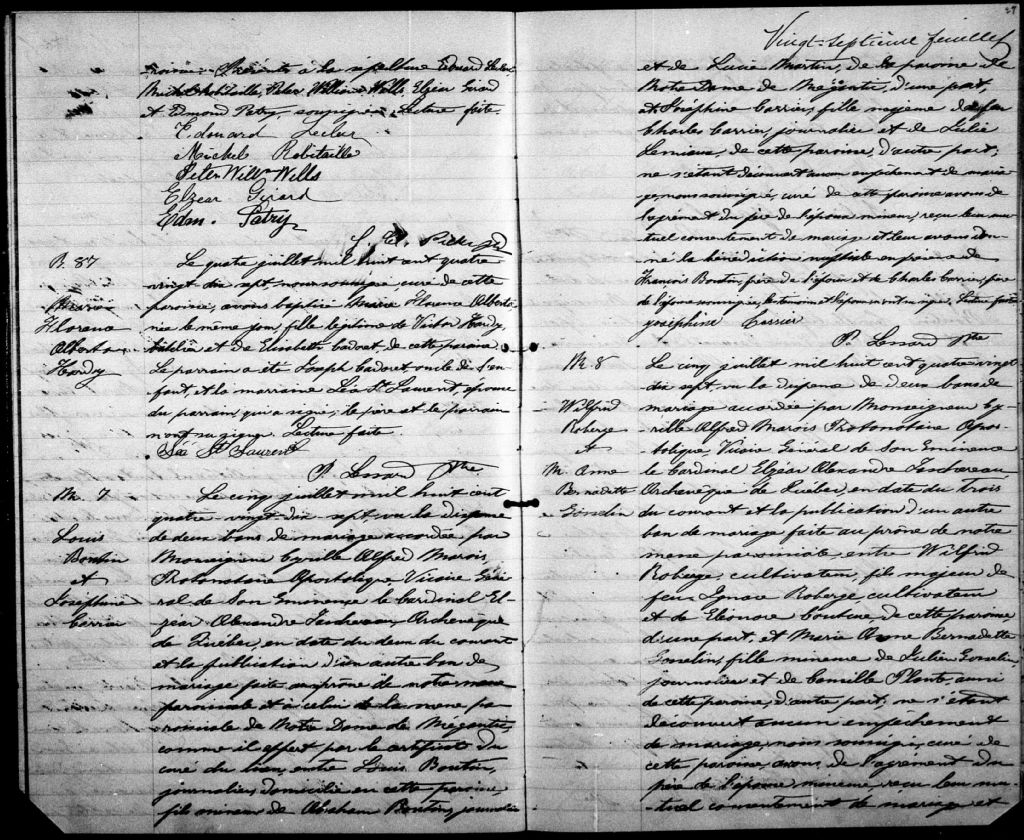 roisse. Présents à la sépulture Edouard Leclerc
Michel Robitaille, Peter William Wills, Elzéar Girard
et Edmond Patry, soussignés. Lecture faite.
Edouard Leclerc
Michel Robitaille
Peter Willm Wills
Elzear Girard
Edm. Patry
B. 87
Florena
Alberta
Hardy
Le quatre juillet mil huit cent quatre
vingt dix sept, nous soussigné, curé de cette
paroisse, avons baptisé Florena Alberta
née le même jour, fille légitime de Victor Hardy,
et de Elisabeth Cadoret, de cette paroisse
Le parrain a été Joseph Cadoret oncle de l'en-
fant, et la marraine Léa St Laurent, épouse
du parrain, qui a signé, le père et le parrain
n'ont su signer. Lecture faite.
Léa St Laurent
P. Lessard Ptre
M. 7
Louis
Boutin
et
Joséphine
Carrier
Le cinq juillet mil huit cent
quatre-vingt-dix-sept, vu la dispense
de deux bans de mariage accordée par
Monseigneur Cyrille Alfred Marois
Protonotaire Apostolique Vicaire Géné-
ral de Son Eminence le Cardinal El-
zéar Alexandre Taschereau, Archevêque
de Québec, en date du deux du courant
et la publication d'un autre ban de
mariage faite au prône de notre messe
paroissiale et à celui de la messe pa-
roissiale de Notre Dame de Mégantic,
comme il appert par le certificat du
curé du lieu, entre Louis Boutin,
journalier, domicilié en cette paroisse,
fils mineur de Abraham Boutin, journalier
27
Vingt-septième feuillet
et de Lucie Martin, de la paroisse de
Notre Dame de Mégantic, d'une part,
et Joséphine Carrier, fille mineure de
Charles Carrier, journalier et de Julie
Lemieux, de cette paroisse, d'autre part;
ne s'étant découvert aucun empêchement de maria-
ge, nous soussigné, curé de cette paroisse avons de
l'agrément du père de l'épouse mineure, reçu leur mu-
tuel consentement de mariage et leur avons don-
né la bénédiction nuptiale en présence de
François Boutin, père de l'époux et de Charles Carrier, père
de l'épouse soussignée, les témoins et l'époux n'ont su signer. Lecture faite
Joséphine Carrier
P. Lessard Ptre
M. 8
Wilfrid
Roberge
et
M. Anne
Bernadette
Gosselin
Le cinq juillet mil huit cent quatre vingt
dix sept, vu la dispense de deux bans de
mariage accordée par Monseigneur Cy-
rille Alfred Marois Protonotaire Apos-
tolique, Vicaire Général de Son Eminence
le Cardinal Elzéar Alexandre Taschereau
Archevêque de Québec, en date du trois
du courant et la publication d'un autre
ban de mariage faite au prône de notre
messe paroissiale, entre Wilfrid
Roberge, cultivateur, fils majeur de
feu Ignace Roberge, cultivateur
et de Eléonore Couture, de cette paroisse,
d'une part, et Marie Anne Bernadette
Gosselin, fille mineure de Julien Gosselin,
journalier et de Camille Plante, aussi
de cette paroisse, d'autre part; ne s'étant
découvert aucun empêchement
de mariage, nous soussigné, curé de
cette paroisse, avons, de l'agrément du
père de l'épouse mineure, reçu leur mu-
tuel consentement de mariage et